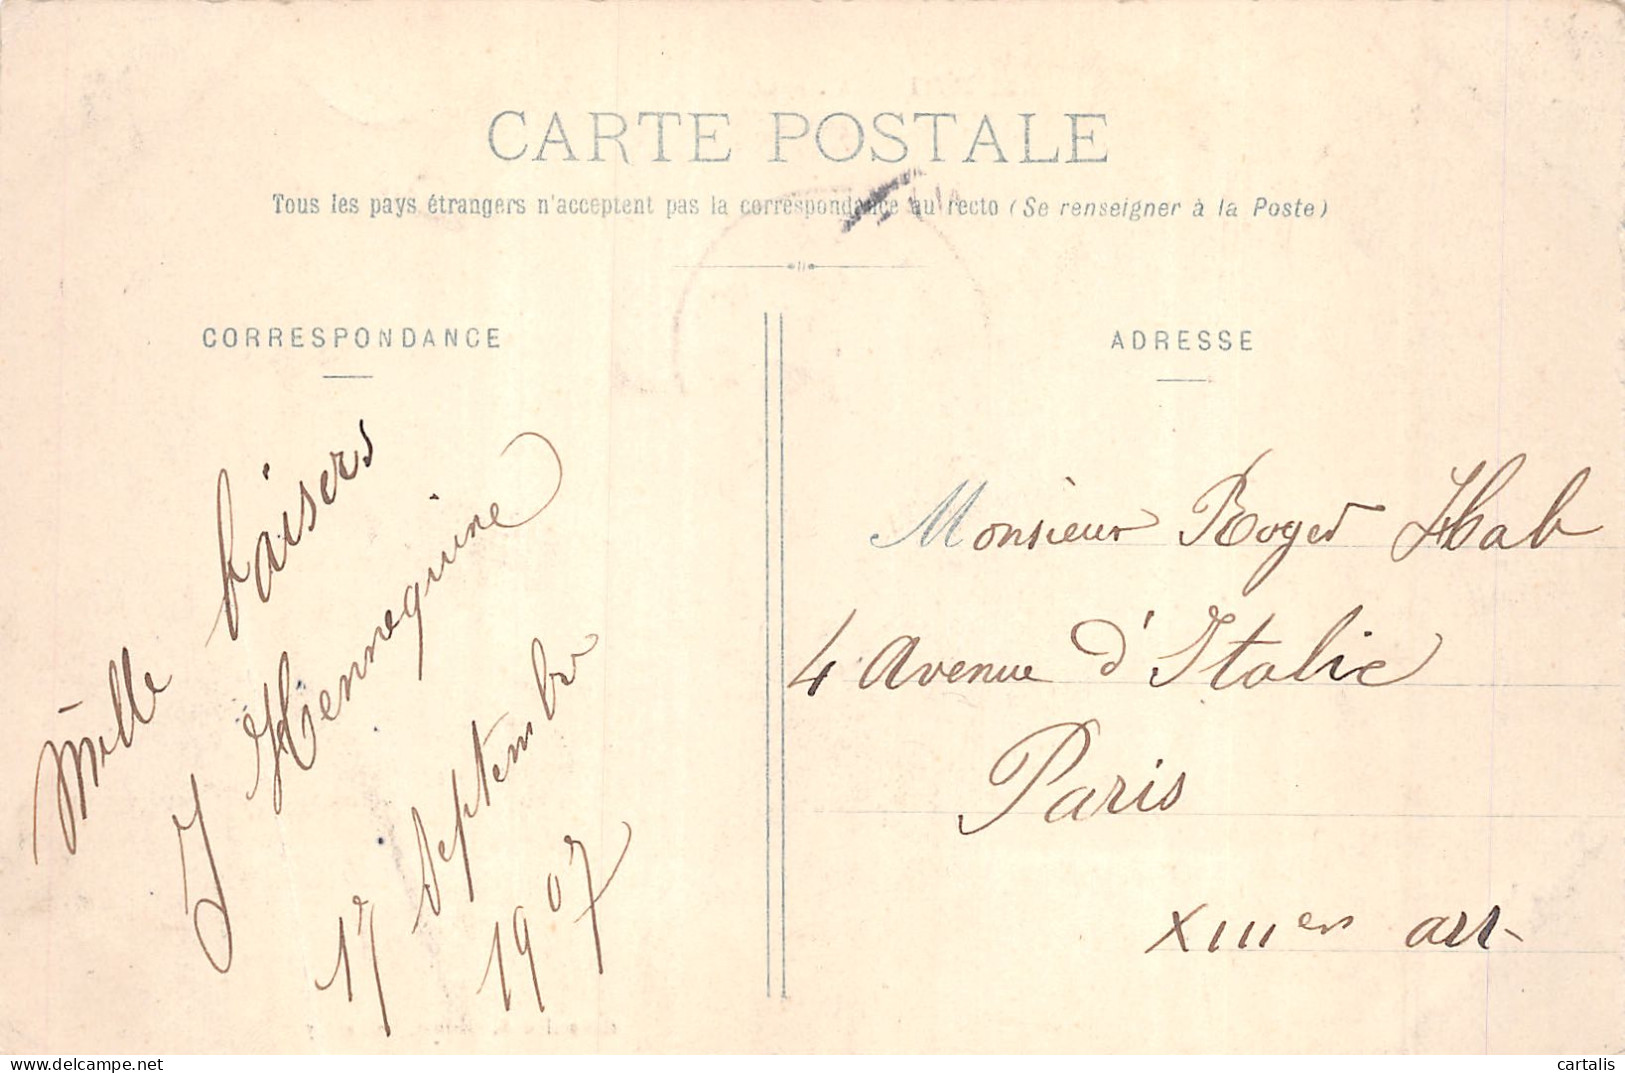 CARTE POSTALE
Tous les pays étrangers n'acceptent pas la correspondance au recto (Se renseigner à la Poste)
CORRESPONDANCE
Mille baisers
J Hennequine
17 Septembre
1907
ADRESSE
Monsieur Roger
4 Avenue d'Italie
Paris
XIII arr
cartalis